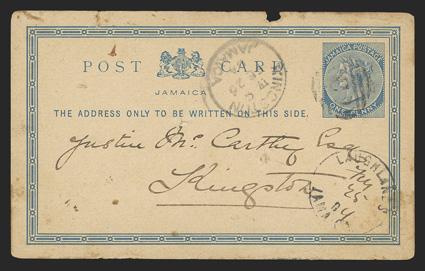 POST CARD
JAMAICA
THE ADDRESS ONLY TO BE WRITTEN ON THIS SIDE.
JAMAICA POSTAGE
ONE PENNY
KINGSTON
JAMAICA
Justin Mc. Carthy Esq
Kingston
25